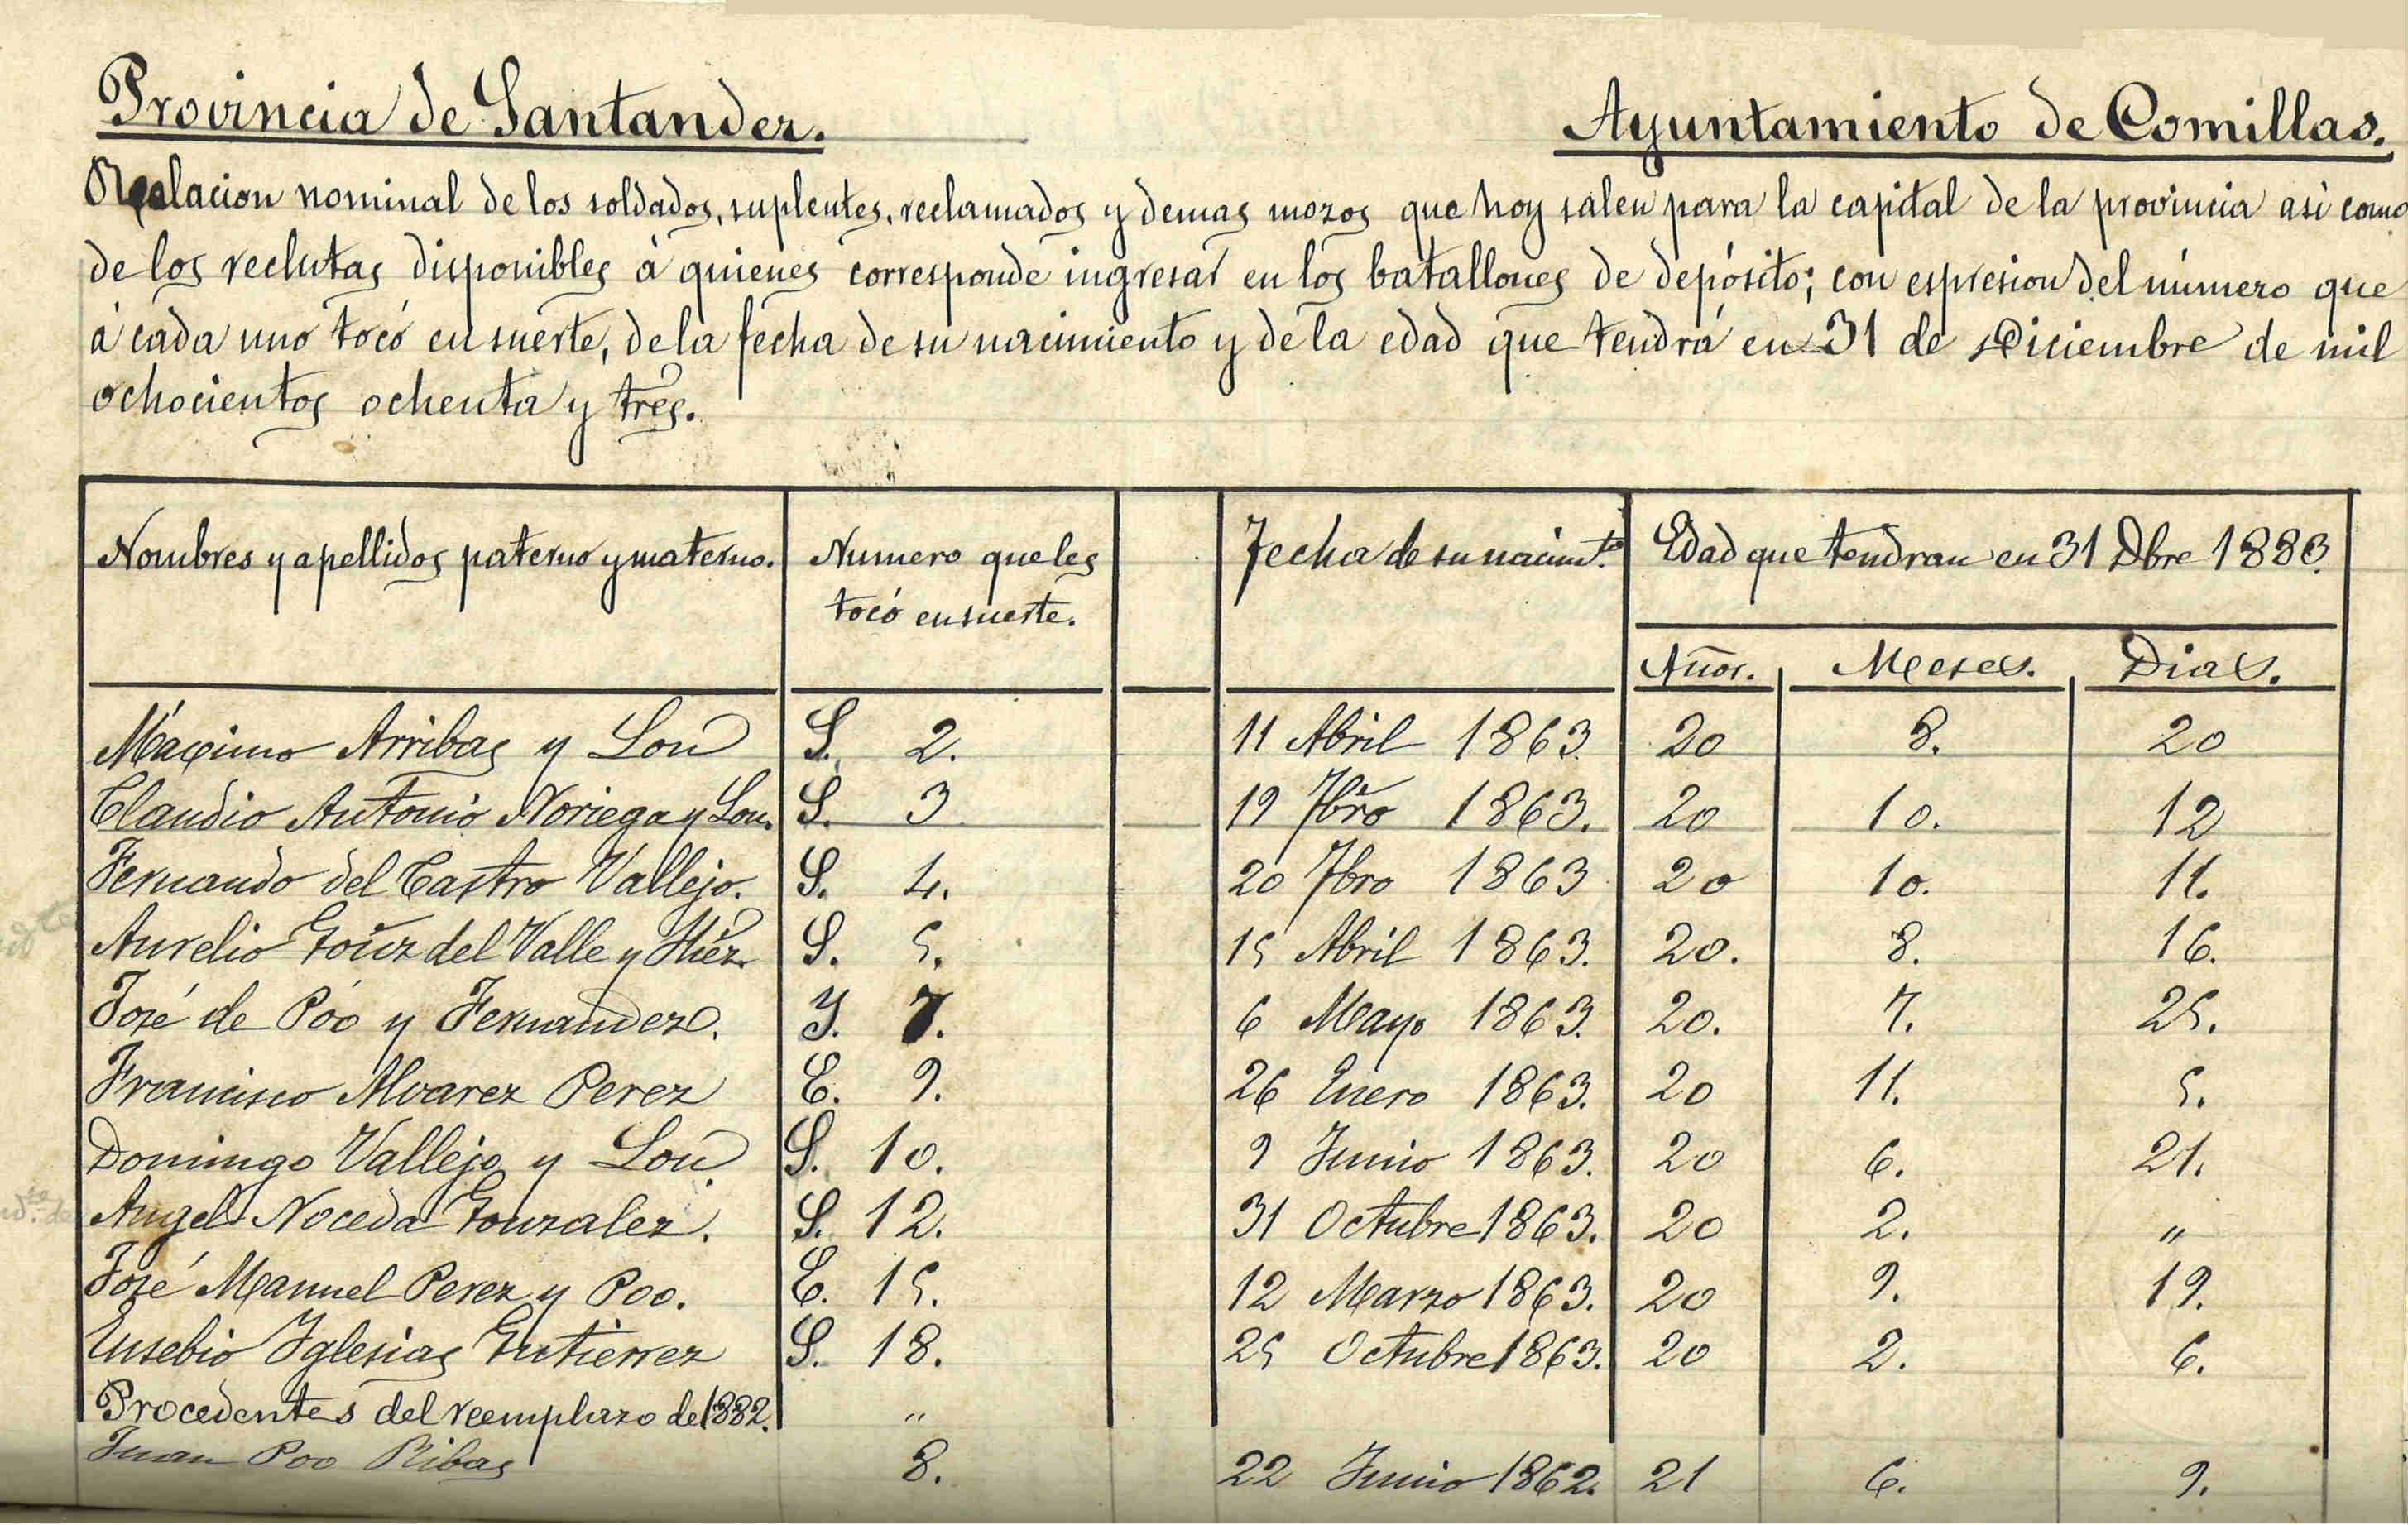 Provincia de Santander.
Ayuntamiento de Comillas.
Relacion nominal de los soldados, suplentes, reclamados y demas mozos que hoy salen para la capital de la provincia asi como
de los reclutas disponibles á quienes corresponde ingresar en los batallones de depósito; con espresion del número que
á cada uno tocó en suerte, de la fecha de su nacimiento y de la edad que tendrá en 31 de Diciembre de mil
ochocientos ochenta y tres.
Nombres y apellidos paterno y materno. Numero que les Fecha de su nacimto. Edad que tendran en 31 Dbre 1883.
tocó en suerte.
Años. Meses. Dias.
Máximo Arribas y Lou S. 2. 11 Abril 1863. 20 8. 20
Claudio Antonio Noriega y Lou. S. 3 19 7bro 1863. 20 10. 12
Fernando del Castro Vallejo. S. 4. 20 7bro 1863 20 10. 11.
Aurelio Gonz del Valle y S. 5. 15 Abril 1863. 20. 8. 16.
José de Póo y Fernandez. Y. 7. 6 Mayo 1863. 20. 7. 25.
Francisco Alvarez Perez E. 9. 26 Enero 1863. 20 11. 5.
Domingo Vallejo y Lou. S. 10. 9 Junio 1863. 20 6. 21.
Angel Noceda Gonzalez. S. 12. 31 Octubre 1863. 20 2. "
José Manuel Perez y Poo. E. 15. 12 Marzo 1863. 20 9. 19.
Eusebio Iglesias Gutierrez S. 18. 25 Octubre 1863. 20 2. 6.
Procedentes del reemplazo de 1882. "
Juan Poo Ribas 8. 22 Junio 1862. 21 6. 9.